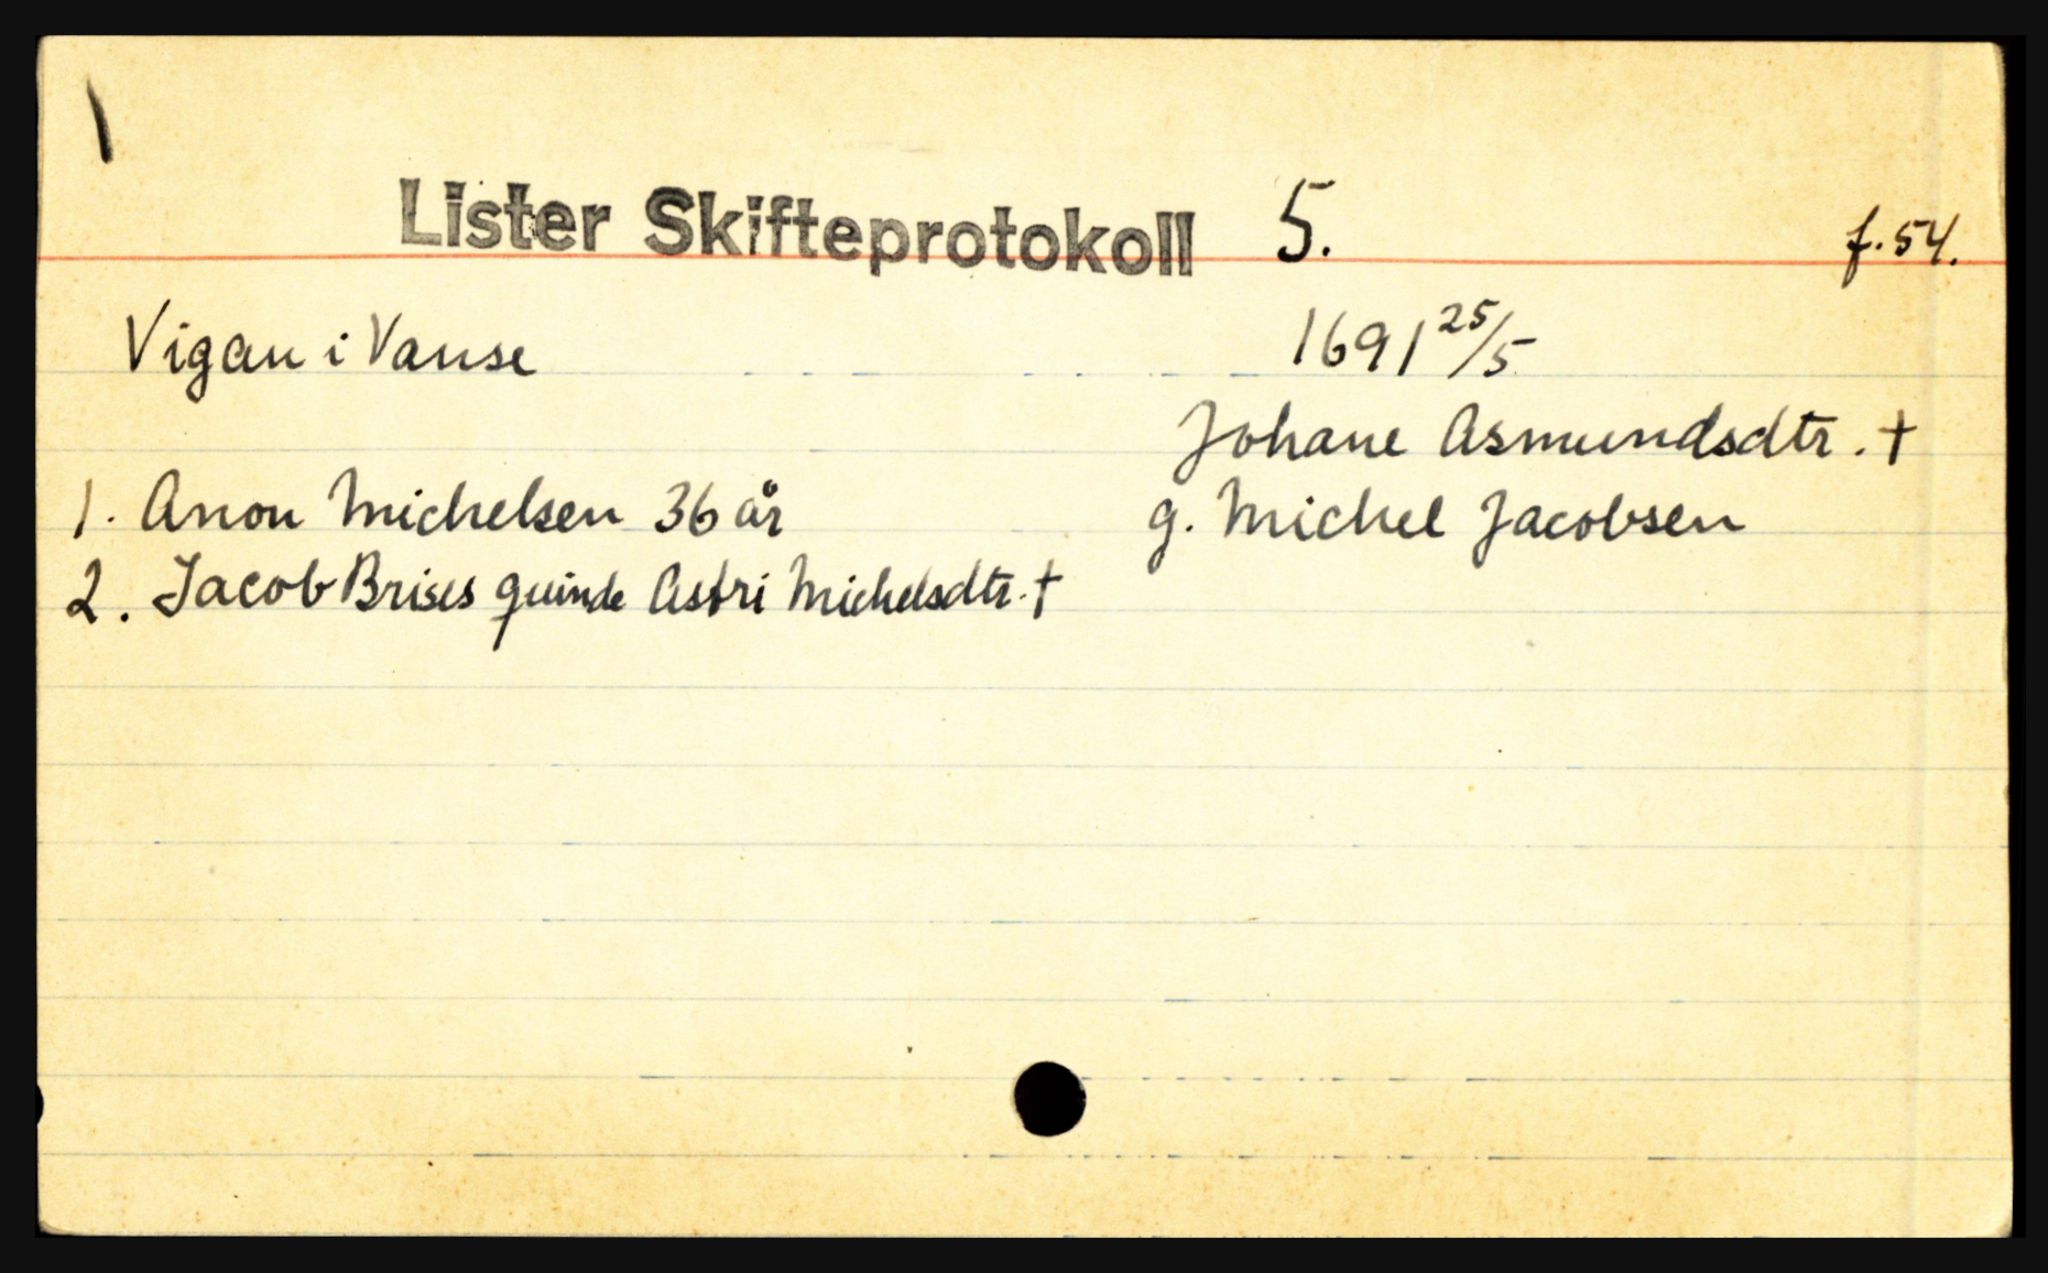 Lister Skifteprotokoll 5. f. 54.
Vigan i Vanse 1691 25/5
Johane Asmundsdtr. †
1. Anon Michelsen 36 år g. Michel Jacobsen
2. Jacob Brises quinde Astri Michelsdtr. †